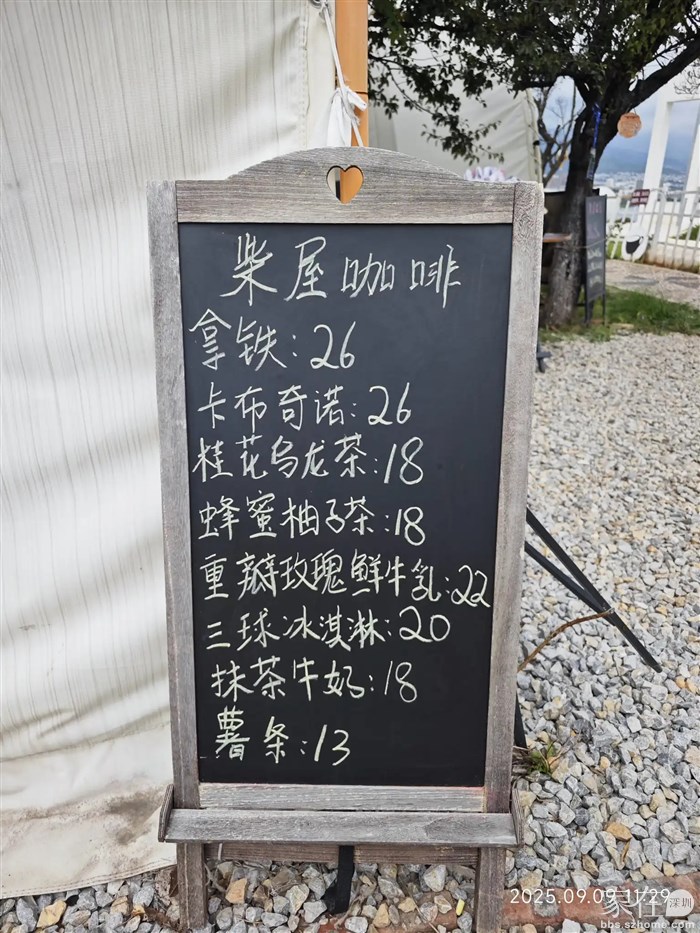 柴屋咖啡
拿铁:26
卡布奇诺:26
桂花乌龙茶:18
蜂蜜柚子茶:18
重瓣玫瑰鲜牛乳:22
三球冰淇淋:20
抹茶牛奶:18
薯条:13
2025.09.09 11:29
家在深圳
bbs.szhome.com